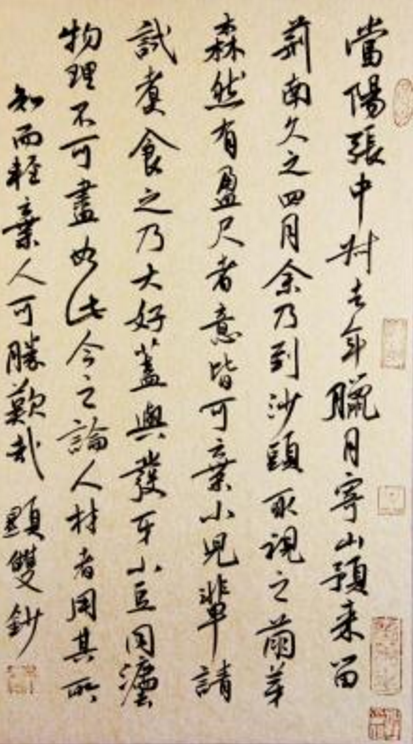 當陽張中叔去年臘月寄山預来留
荊南久之四月余乃到沙頭取視之萌芽
森然有盈尺者意皆可棄小兒輩請
試煮食之乃大好蓋與發牙小豆同灋
物理不可盡如此今之論人材者用其所
知而輕棄人可勝歎哉 顯雙鈔